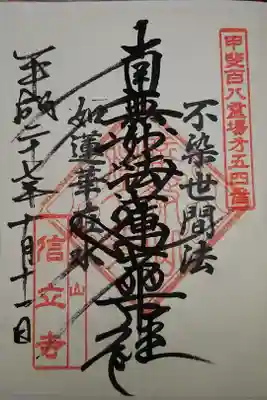 甲斐百八霊場第五四番
不染世間法
南無妙法蓮華経
如蓮華在水
平成二十七年十月十一日
信立寺